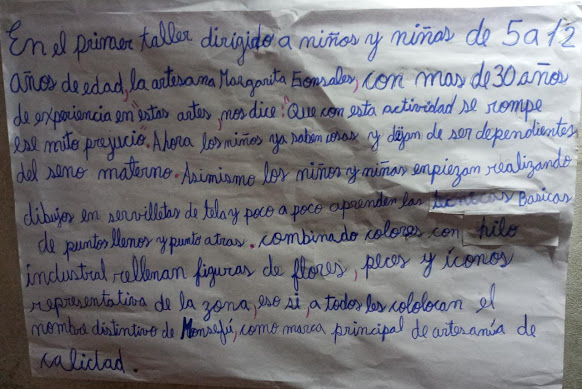 En el primer taller dirigido a niños y niñas de 5 a 12
años de edad, la artesana Margarita Gonsales, con mas de 30 años
de experiencia en "estas artes", nos dice: "Que con esta actividad se rompe
ese mito prejucio". Ahora los niños ya saben cosas y dejan de ser dependientes
del seno materno. Asimismo los niños y niñas enpiezan realizando
dibujos en servilletas de tela y poco a poco aprenden las tecnicas Basicas
de puntos llenos y punto atras. combinado colores con hilo
industrial rellenan figuras de flores, peces y íconos
representativa de la zona, eso si, a todos les cololocan el
nombre distintivo de Monsefú, como marca principal de artesanía de
calidad.